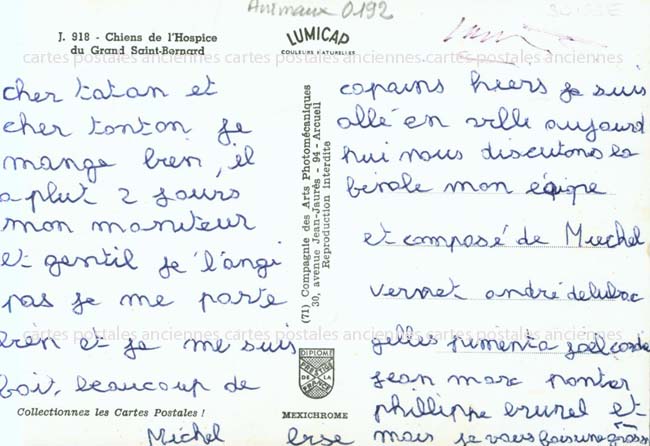 Animaux 0192
J. 918 - Chiens de l'Hospice
du Grand Saint-Bernard
LUMICAP
COULEURS NATURELLES
cartes postales anciennes cartes postales anciennes cartes postales anciennes
cher tatan et
cher tonton je
mange bien, il
a plut 2 jours
mon moniteur
et gentil je l'angi
pas je me porte
bien et je me suis
fait, beaucoup de
(71) Compagnie des Arts Photomécaniques
30, avenue Jean-Jaurès - 94 - Arcueil
Reproduction Interdite
copains hiers je suis
allé en ville aujourd
hui nous discutons la
mon équipe
et composé de Michel
vernet andré delubac
gilles pimenta joël coste
jean marc pontier
phillippe brunel et
mais je vais faire un gros
cartes postales anciennes cartes postales anciennes cartes postales anciennes
DIPLOME
PRESTIGE DE LA FRANCE
Collectionnez les Cartes Postales !
MEXICHROME
Michel